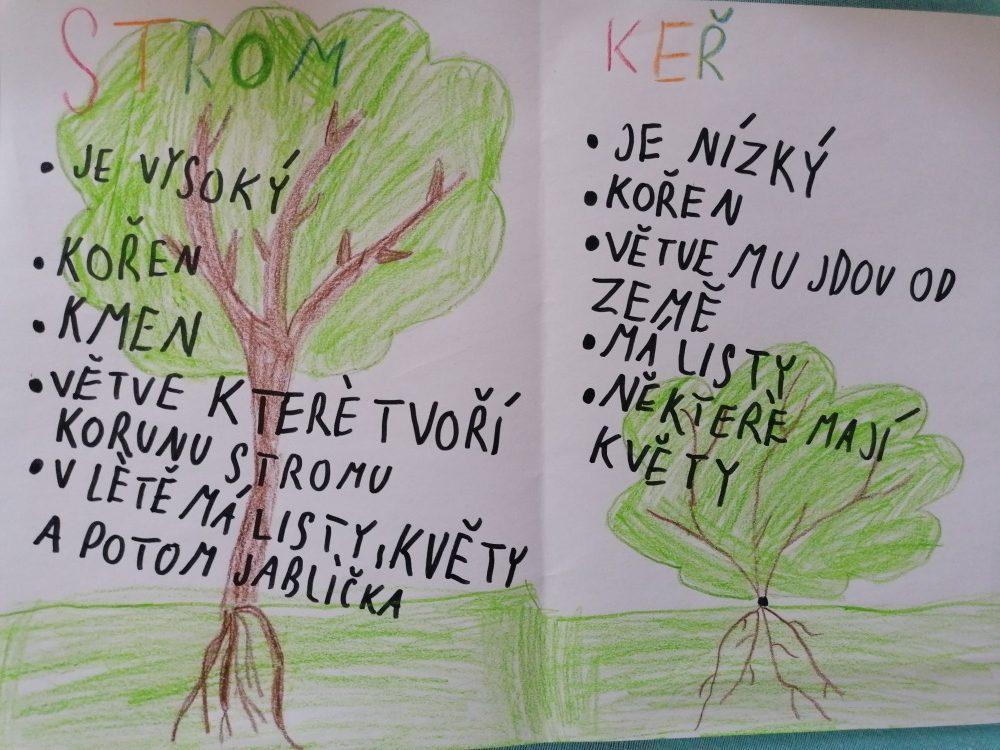 STROM
• JE VYSOKÝ
• KOŘEN
• KMEN
• VĚTVE KTERÈ TVOŘÍ
KORUNU STROMU
• V LÈTĚ MÁ LISTY, KVĚTY
A POTOM JABLÌČKA
KEŘ
• JE NÍZKÝ
• KOŘEN
• VĚTVE MU JDOU OD
ZEMĚ
• MÁ LISTY
• NĚKTERÈ MAJÍ
KVĚTY